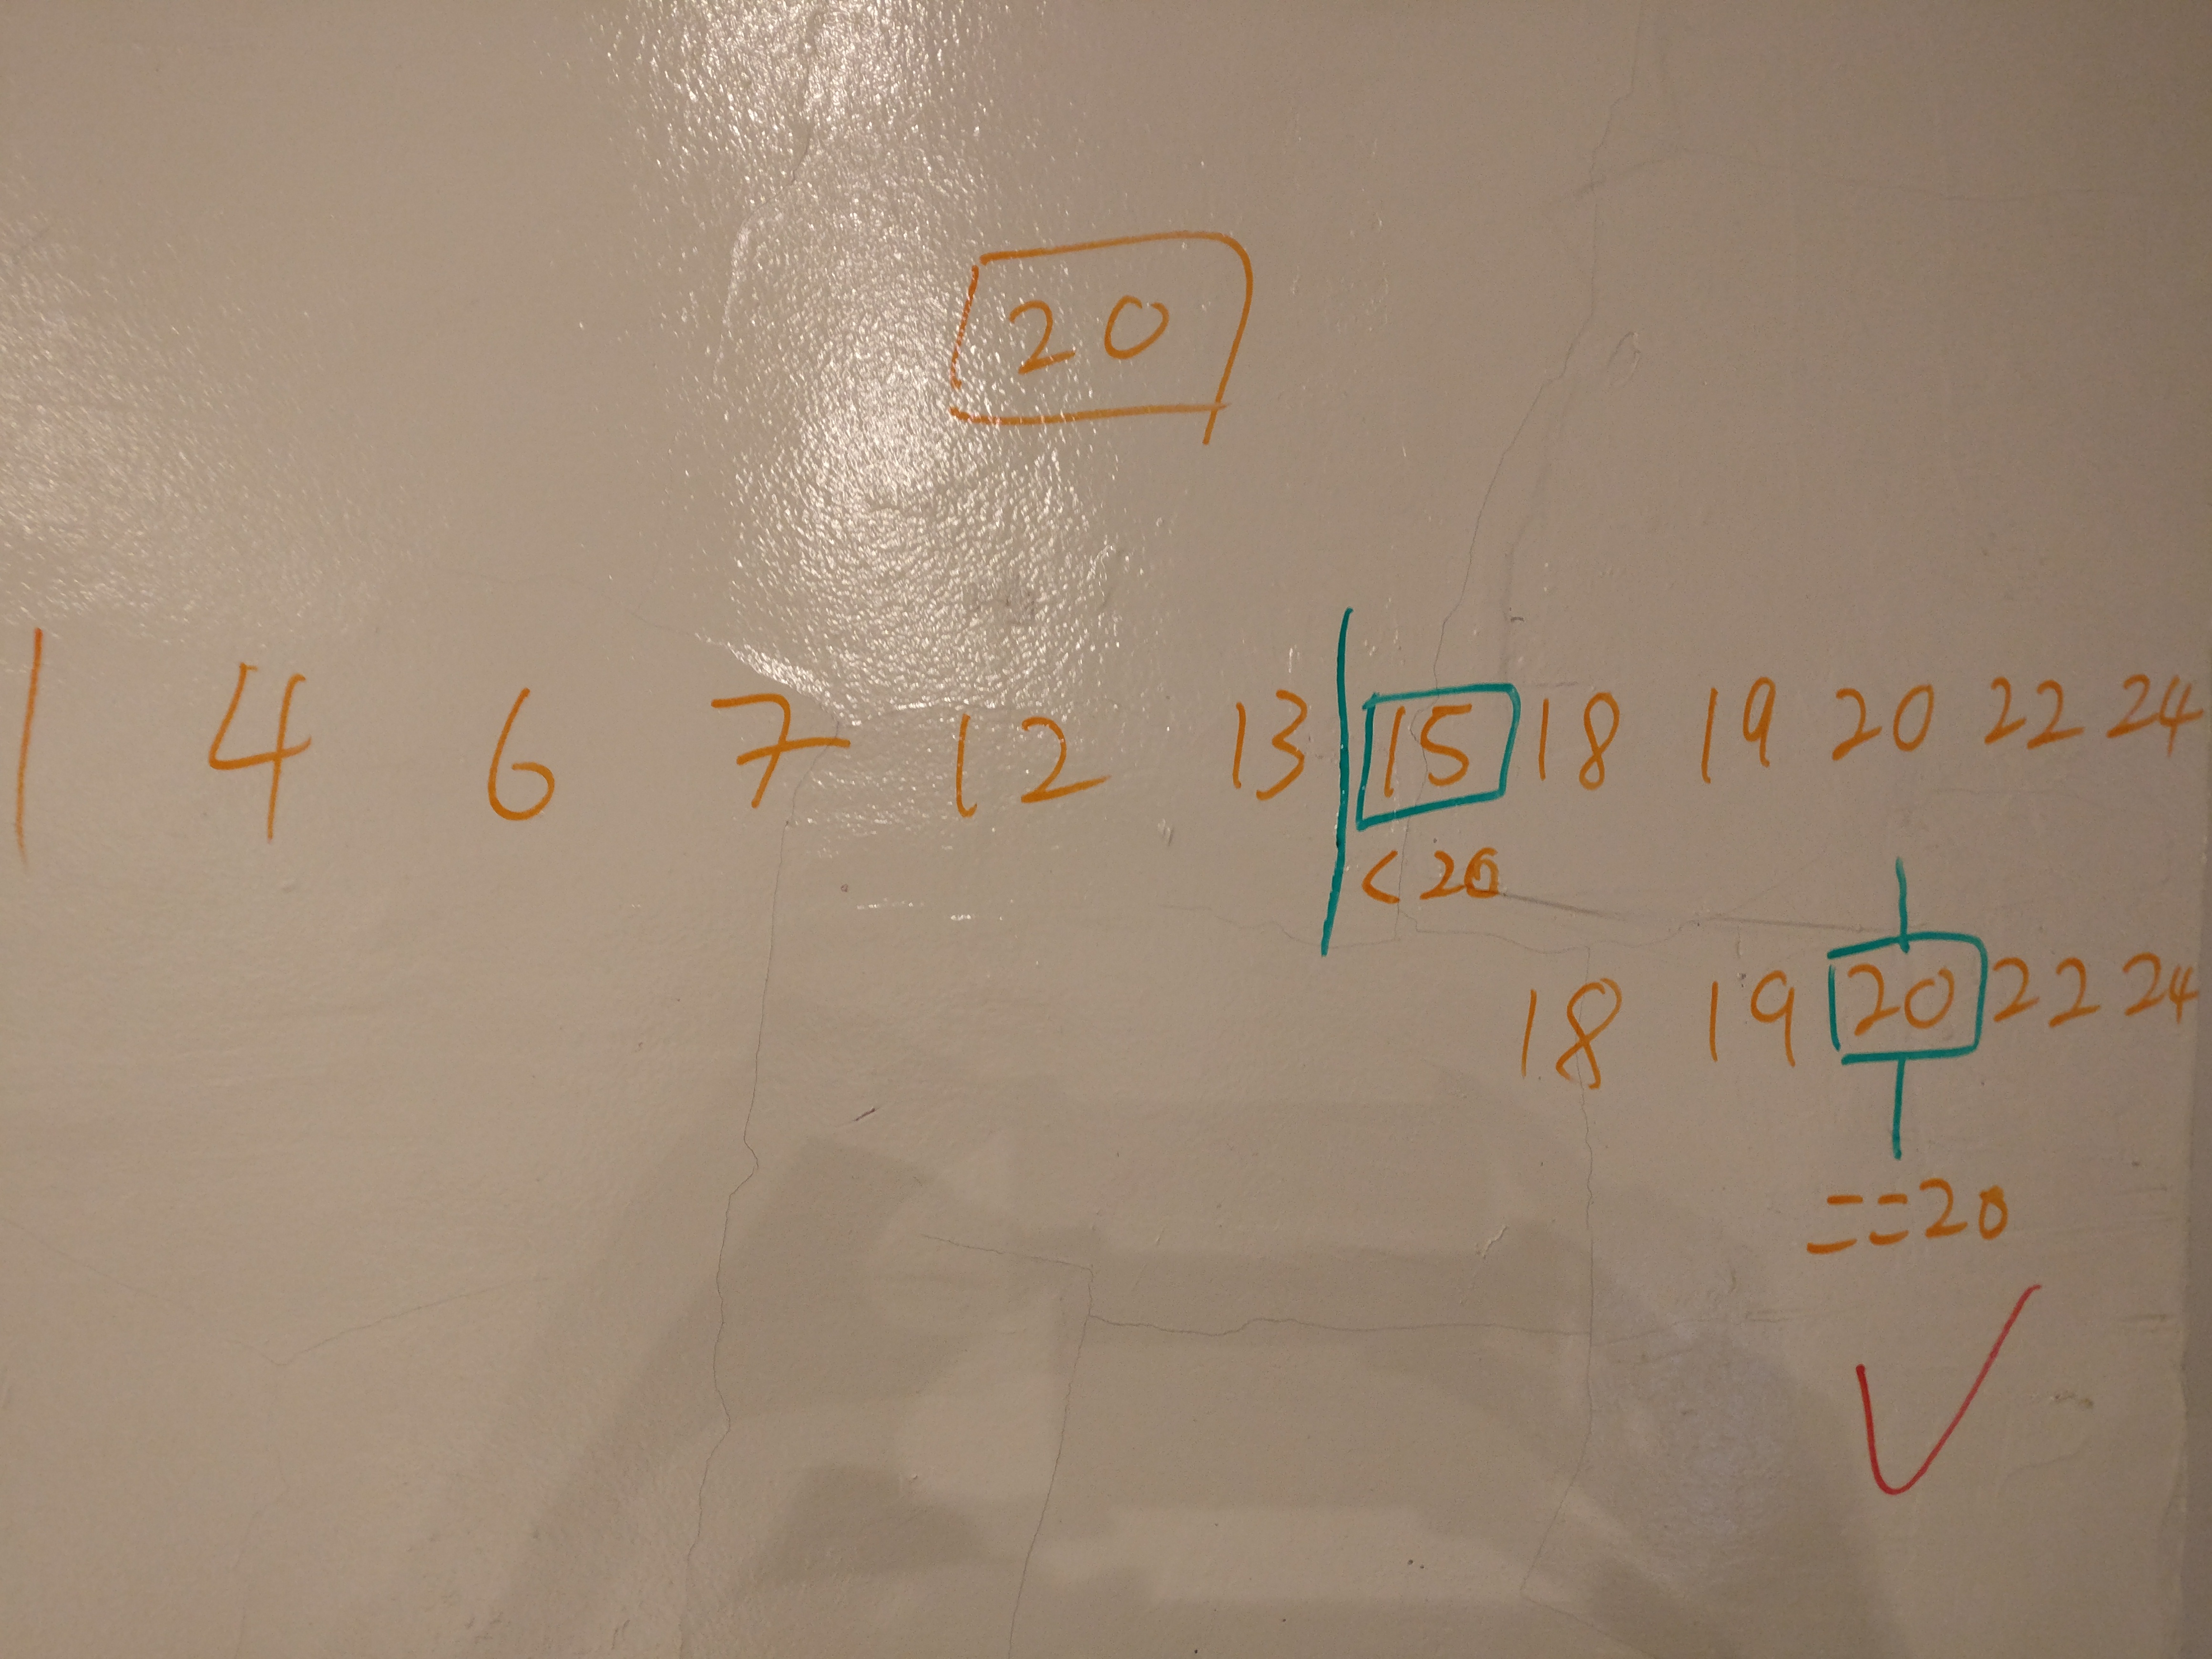 20
1 4 6 7 12 13 15 18 19 20 22 24
<20
18 19 20 22 24
==20